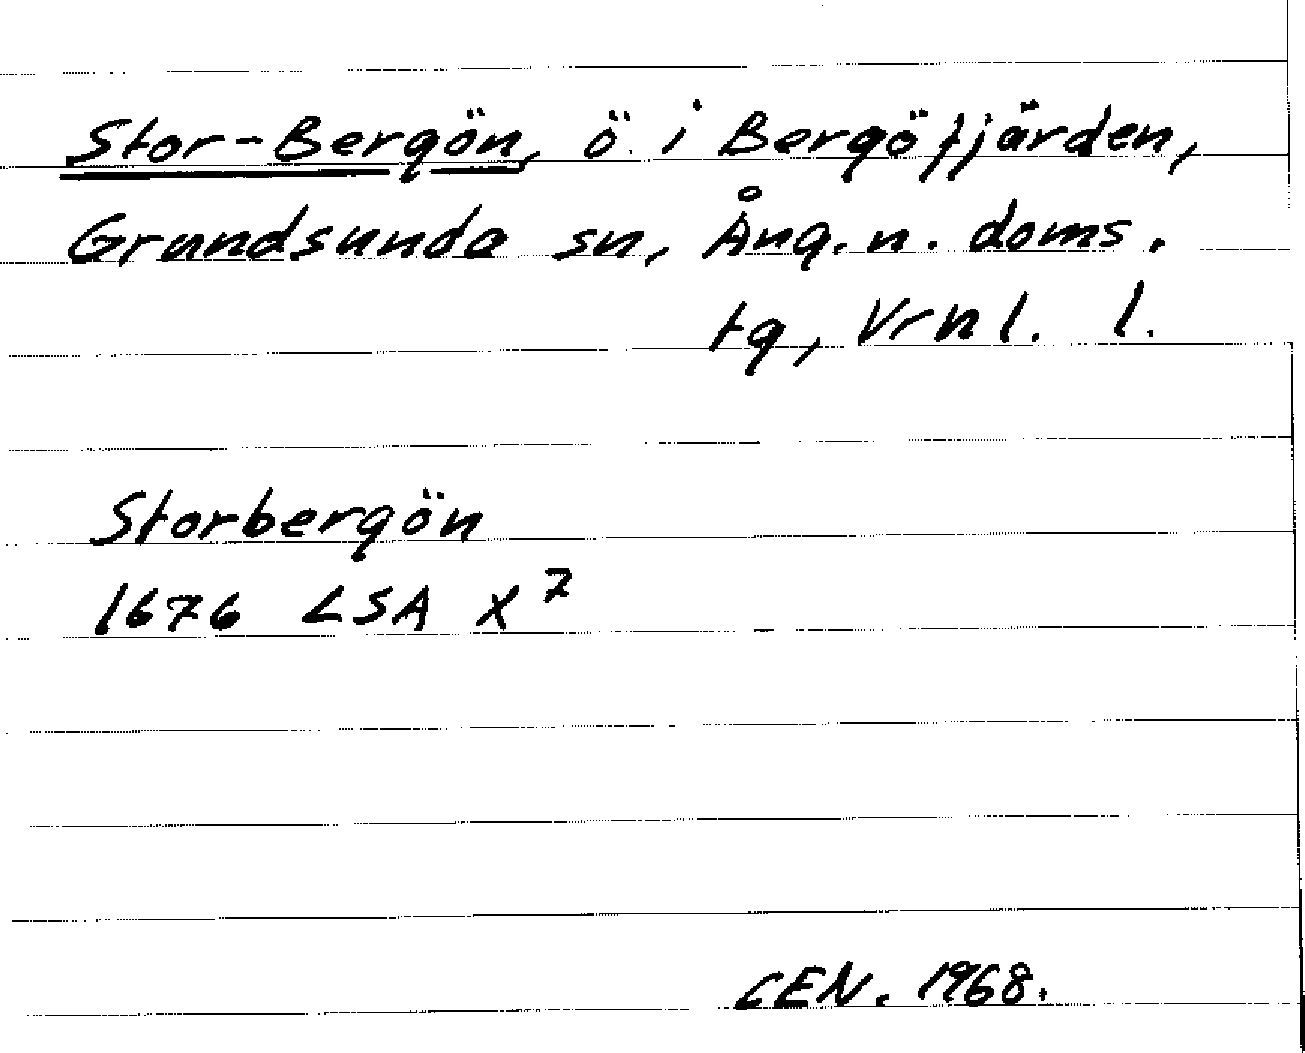 Stor-Bergön, ö i Bergöfjärden,
Grundsunda sn, Ång. n. doms.
tg, Vrnl. l.
Storbergön
1676 LSA X⁷
CEN. 1968.